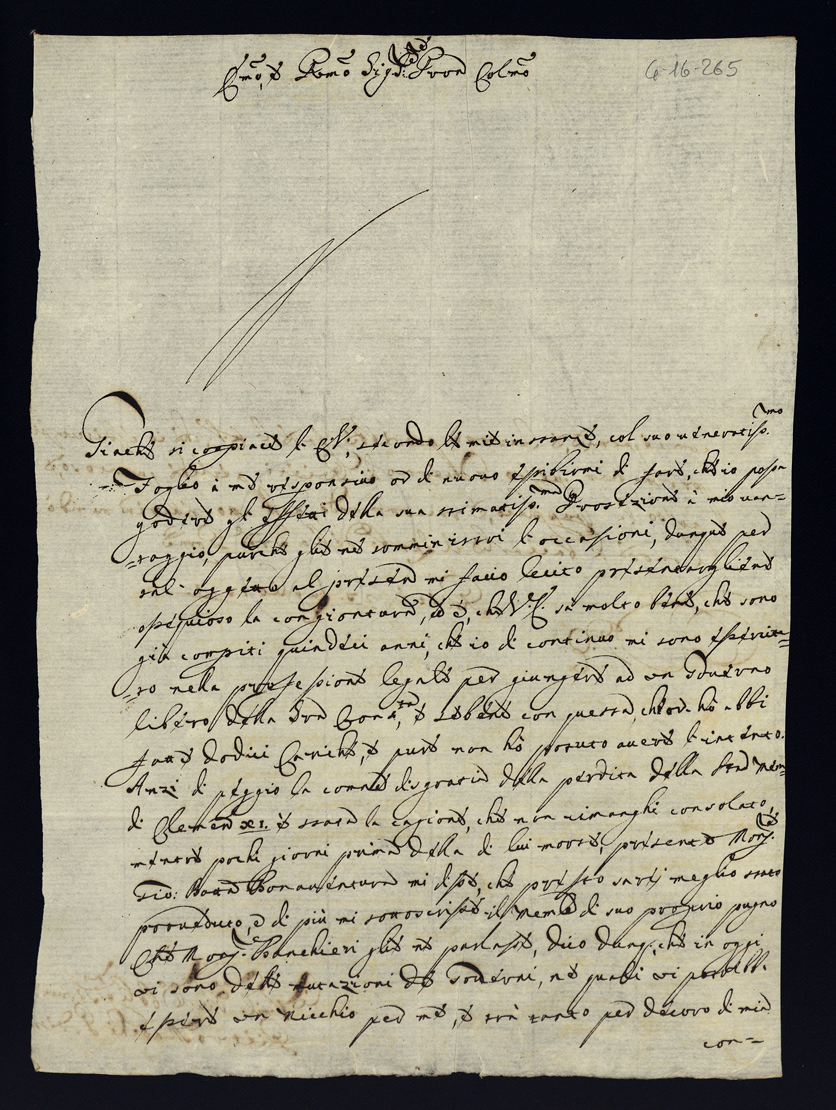 Em̃o, e Rmõ Sig.re Pron Colmõ
G-16-265
Giache si compiace l' E.V., secondo le mie instanze, col suo veneratiss.mo
Foglio à me risponsivo or di nuovo esibirmi di fare, che io possa
godere gl' effetti della sua stimatiss.ma Protezione à mio van=
=taggio, purche glie ne somministri l' occasioni, dunque per
tal' oggetto al presente mi faccio lecito presentargliene
ossequioso la congiontura, ed è, che V.E. sà molto bene, che sono
già compiti quindeci anni, che io di continuo mi sono esercita=
=to nella professione legale per giungere ad un Governo
libero della Sra Cons.ta, e sebene con questa, che or hò abbi
fatte dodici Cariche, e pure non hò potuto avere l' intento.
Anzi di peggio la comune disgrazia della perdita della San Mem
di Clemen XI. è stata la cagione, che non rimanghi consolato,
mentre pochi giorni prima della di lui morte, presente Mons.re
Gio: Batta Bonaventura mi disse, che presto sarej meglio stato
proveduto, e di più mi sottoscrisse il Memle di suo proprio pugno
Che Mons.re Banchieri glie ne parlasse, dico dunq. che in oggi
vi sono delle mutazioni de Governi, ne quali vi potrebb.
essere un nicchio per me, e trà tanto per decoro di mia
con=